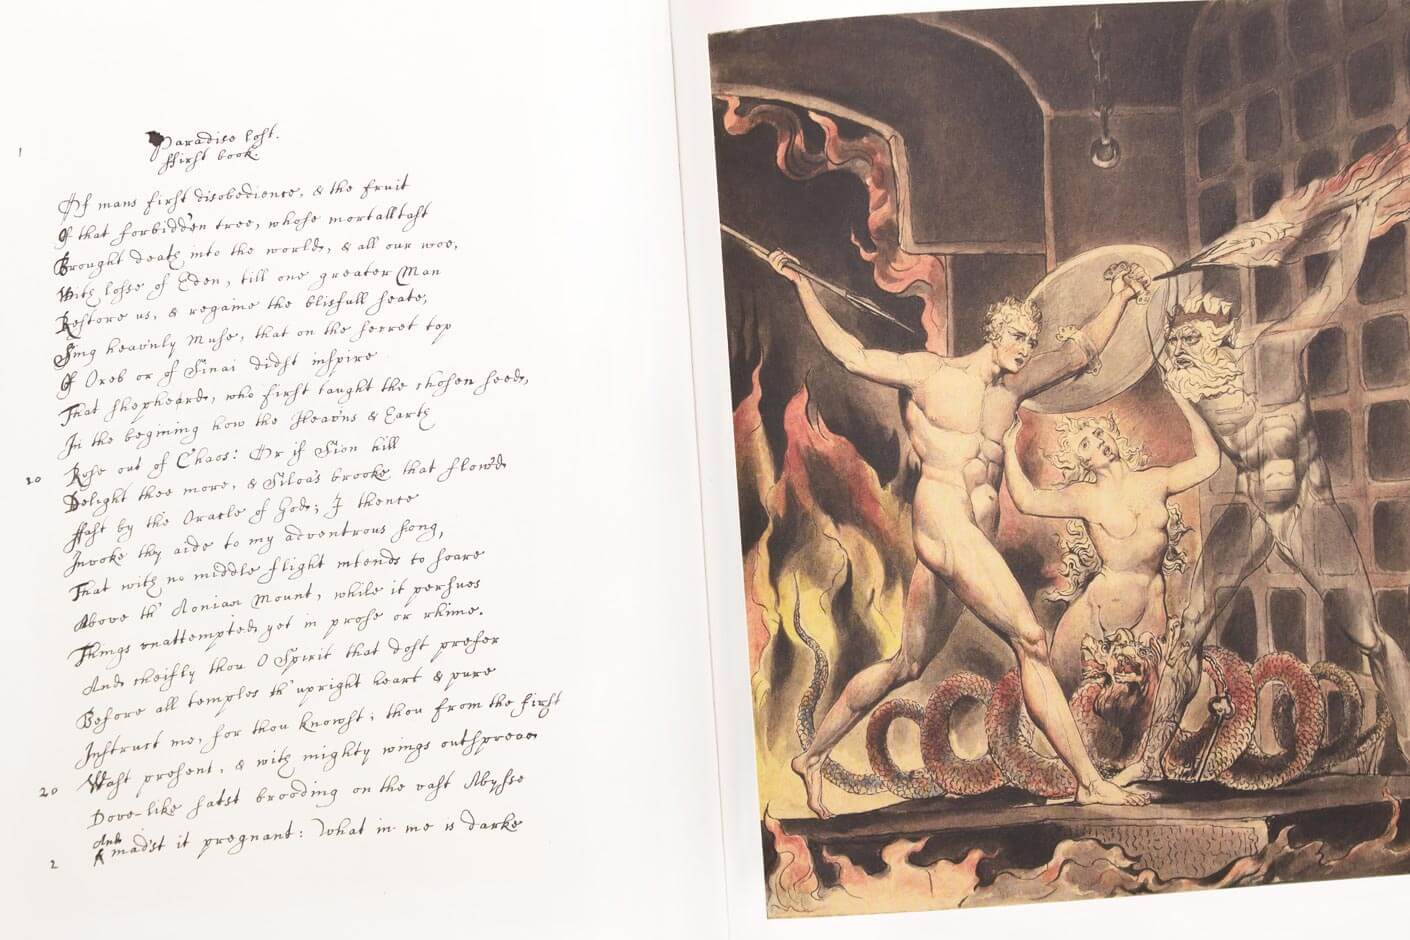 Paradise lost.
ffirst book.
1
Of mans first disobedience, & the fruit
Of that forbidd'en tree, whose mortall tast
Brought death into the world, & all our woe,
With losse of Eden, till one greater Man
Restore us, & regaine the blisfull seate,
Sing heav'nly Muse, that on the secret top
Of Oreb or of Sinai didst inspire
That shepheard, who first taught the chosen seed,
In the begining how the Heav'ns & Earth
10 Rose out of Chaos: Or if Sion hill
Delight thee more, & Siloa's brooke that flow'd
ffast by the Oracle of God; I thence
Invoke thy aide to my adventrous song,
That with no middle flight intends to soare
Above th' Aonian Mount, while it persues
Things vnattempted yet in prose or rhime.
And cheifly thou O Spirit that dost prefer
Before all temples th' upright heart & pure
Instruct me, for thou knowst; thou from the first
20 Wast present, & with mighty wings outspread
Dove-like satst brooding on the vast Abysse
And
2 mad'st it pregnant: What in me is darke